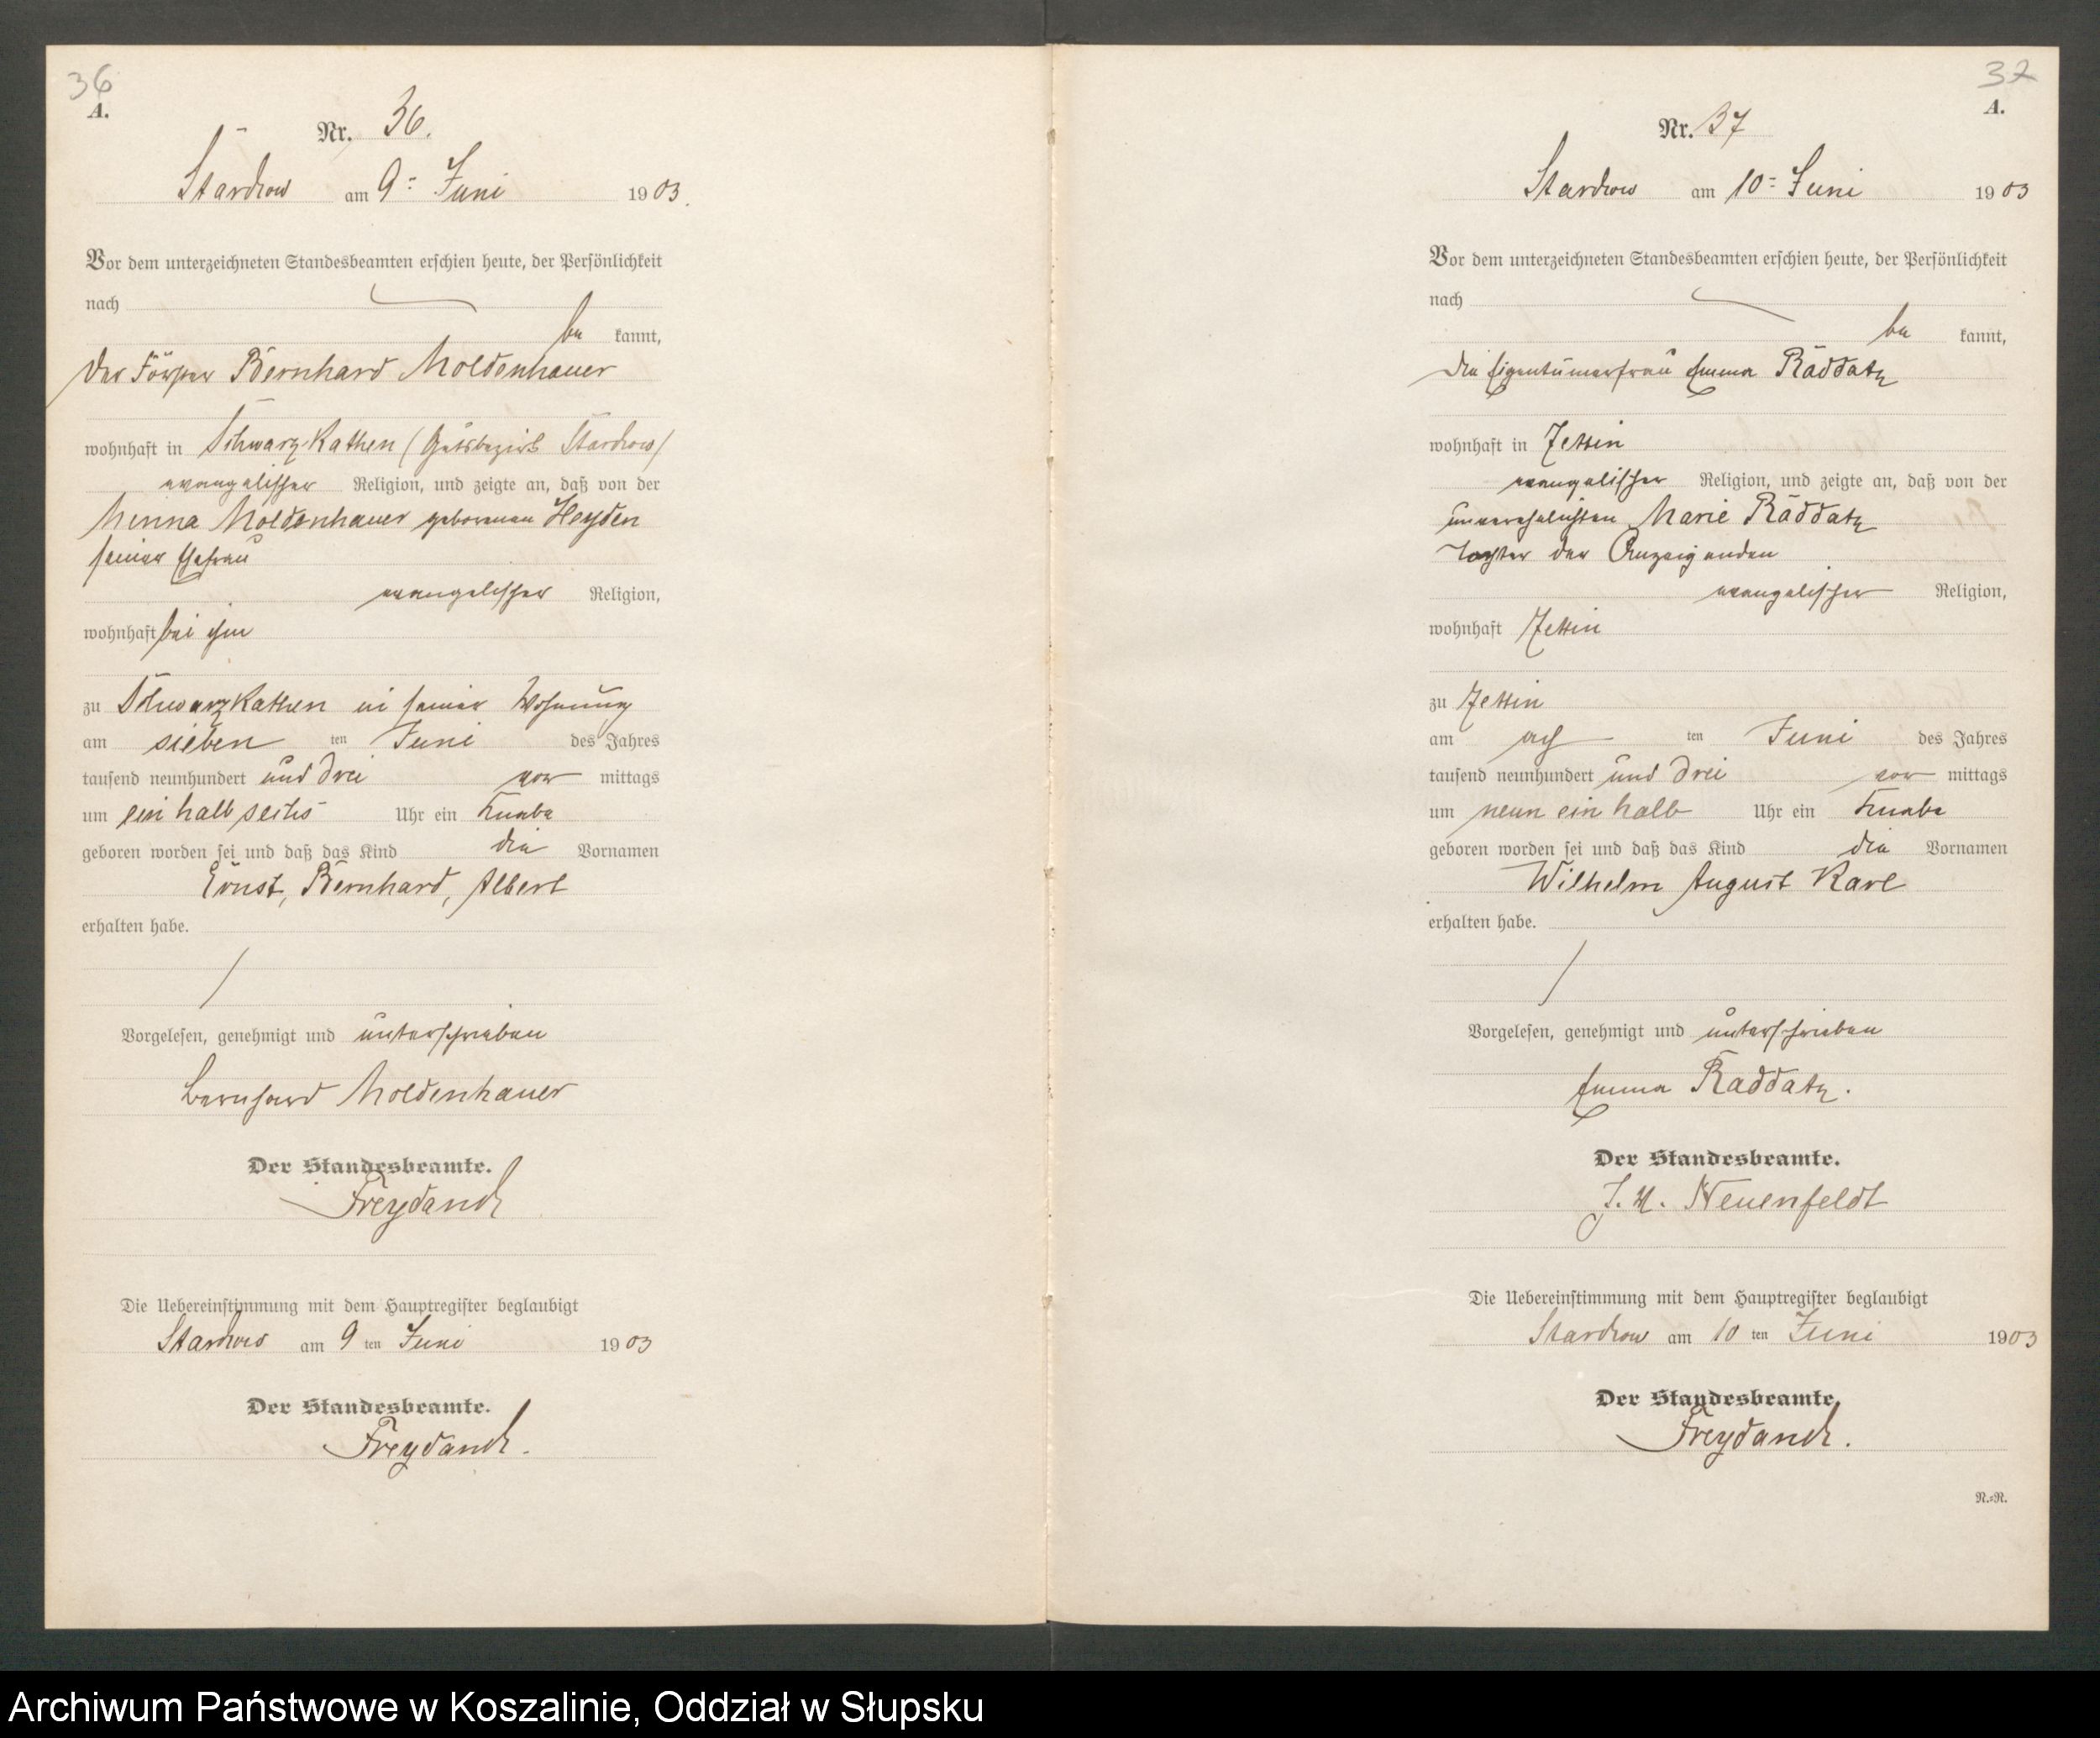 36
A.
Nr. 36.
Stardrow am 9ten Juni 1903.
Vor dem unterzeichneten Standesbeamten erschien heute, der Persönlichkeit
nach
be kannt,
der Förster Bernhard Moldenhauer
wohnhaft in Schwarz Kathen (Gutsbezirk Stardrow)
evangelischer Religion, und zeigte an, daß von der
Minna Moldenhauer geborenen Heyden
seiner Ehefrau
evangelischer Religion,
wohnhaft bei ihm
zu Schwarz Kathen in seiner Wohnung
am sieben ten Juni des Jahres
tausend neunhundert und drei vor mittags
um ein halb sechs Uhr ein Knabe
geboren worden sei und daß das Kind die Vornamen
Ernst, Bernhard, Albert
erhalten habe.
Vorgelesen, genehmigt und unterschrieben
Bernhard Moldenhauer
Der Standesbeamte.
Freydanck
Die Uebereinstimmung mit dem Hauptregister beglaubigt
Stardrow am 9 ten Juni 1903
Der Standesbeamte.
Freydanck.
37
A.
Nr. 37
Stardrow am 10ten Juni 1903
Vor dem unterzeichneten Standesbeamten erschien heute, der Persönlichkeit
nach
be kannt,
die Eigentümerfrau Emma Räddatz
wohnhaft in Zettin
evangelischer Religion, und zeigte an, daß von der
unverehelichten Marie Räddatz
Tochter der Anzeigenden
evangelischer Religion,
wohnhaft Zettin
zu Zettin
am ach ten Juni des Jahres
tausend neunhundert und drei vor mittags
um neun ein halb Uhr ein Knabe
geboren worden sei und daß das Kind die Vornamen
Wilhelm August Karl
erhalten habe.
Vorgelesen, genehmigt und unterschrieben
Emma Raddatz.
Der Standesbeamte.
J. V. Neuenfeldt
Die Uebereinstimmung mit dem Hauptregister beglaubigt
Stardrow am 10 ten Juni 1903
Der Standesbeamte.
Freydanck.
N.=R.
Archiwum Państwowe w Koszalinie, Oddział w Słupsku